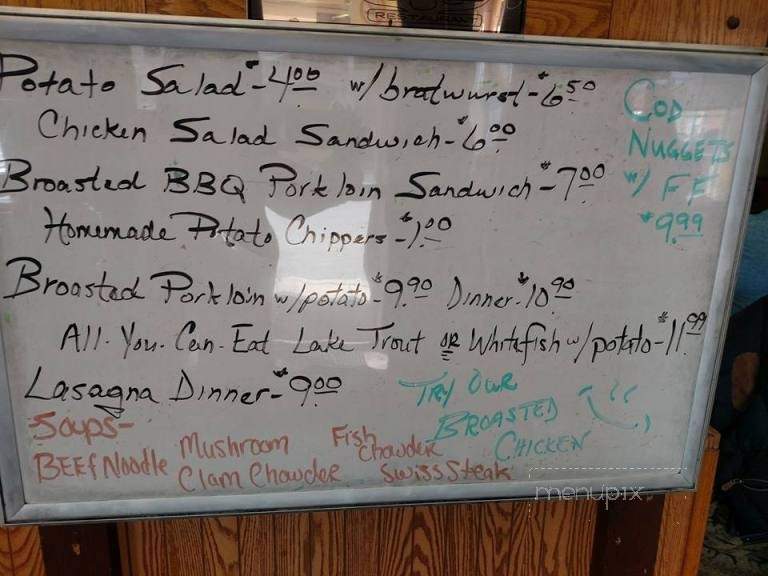 RESTAURANT
Potato Salad - $4.00 w/bratwurst - $6.50
Chicken Salad Sandwich - $6.00
Broasted BBQ Porkloin Sandwich - $7.00
Homemade Potato Chippers - $1.00
Broasted Porkloin w/potato - $9.90 Dinner - $10.90
All-You-Can-Eat Lake Trout OR Whitefish w/potato - $11.99
Lasagna Dinner - $9.00
COD
NUGGETS
w/ FF
$9.99
TRY OUR
BROASTED
CHICKEN
Soups-
BEEf Noodle Mushroom Fish Chowder
Clam Chowder Swiss Steak
menupix